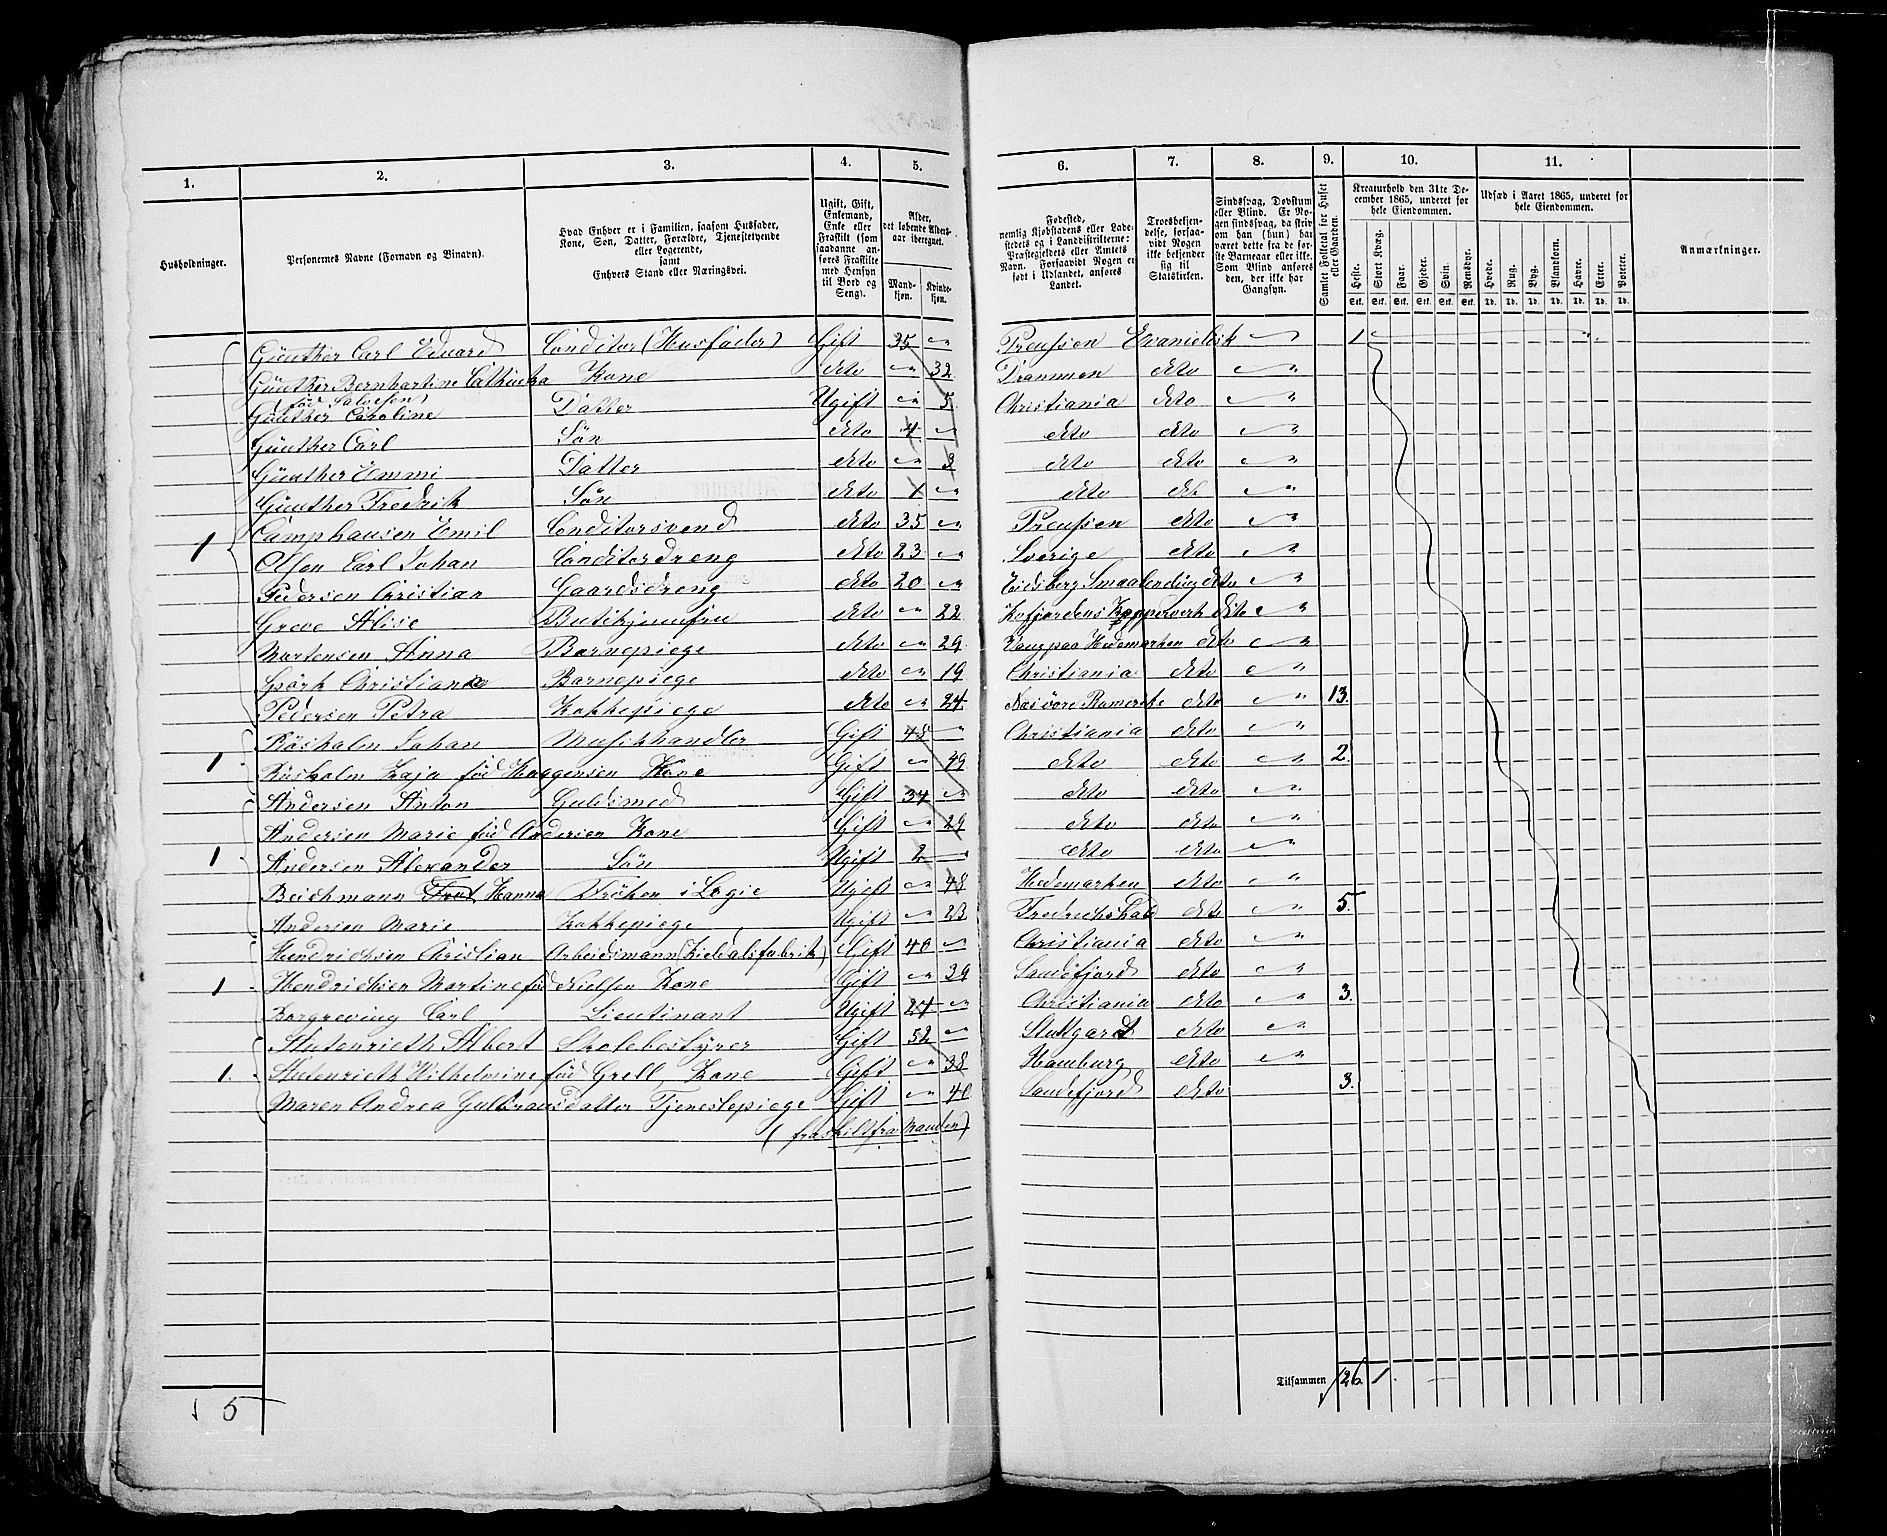 1. 2. 3. 4. 5. 6. 7. 8. 9. 10. 11.
Husholdninger.
Personernes Navne (Fornavn og Binavn).
Hvad Enhver er i Familien, saasom Husfader,
Kone, Søn, Datter, Forældre, Tjenestetyende
eller Logerende,
samt
Enhvers Stand eller Næringsvei.
Ugift, Gift,
Enkemand,
Enke eller
Fraskilt (som
saadanne an-
føres Fraskilte
med Hensyn
til Bord og
Seng).
Alder,
det løbende Alders-
aar iberegnet.
Mand-
kjøn.
Kvinde-
kjøn.
Fødested,
nemlig Kjøbstadens eller Lade-
stedets og i Landdistrikterne:
Præstegjeldets eller Amtets
Navn. Forsaavidt Nogen er
født i Udlandet, anføres
Landet.
Troesbekjen-
delse, forsaa-
vidt Nogen
ikke bekjender
sig til
Statskirken.
Sindssvag, Døvstum
eller Blind. Er No-
gen sindssvag, da skriv
om han (hun) har
været dette fra de før-
ste Barneaar eller ikke.
Som Blind anføres
den, der ikke har
Gangsyn.
Samlet Folketal for Huset
eller Gaarden.
Kreaturhold den 31te De-
cember 1865, underet for
hele Eiendommen.
Heste. Stort Kvæg. Faar. Gjeder. Svin. Rensdyr.
Stk. Stk. Stk. Stk. Stk. Stk.
Udsæd i Aaret 1865, underet for
hele Eiendommen.
Hvede. Rug. Byg. Blandkorn. Havre. Erter. Poteter.
Td. Td. Td. Td. Td. Td. Td.
Anmærkninger.
Günther Carl Eduard Conditor (Husfader) Gift 35 " Preussen Evanielisk " 1
Günther Bernhartine Cathinka Kone dito " 32 Drammen dito "
(fød Salvesen)
Günther Caroline Datter Ugift " 5 Christiania dito "
Günther Carl Søn dito 4 " dito dito "
Günther Emmi Datter dito " 3 dito dito "
Günther Fredrik Søn dito 1 " dito dito "
1 Camphausen Emil Conditorsvend dito 35 " Preussen dito "
Olsen Carl Johan Conditordreng dito 23 " Sverige dito "
Pedersen Christian Gaardsdreng dito 20 " Eidsberg Smaalenene dito "
Greve Alise Butikjomfru dito " 22 Kofjordens Kopperverk dito "
Mortensen Anna Barnepiege dito " 29 Vang paa Hedemarken dito "
Christiane Barnepiege dito " 19 Christiania dito "
Pedersen Petra Kokkepiege dito " 24 Næs Romerike dito " 13.
Johan Musikhandler Gift 48 " Christiania dito "
1 Kaja fød Haggensen Kone Gift " 49 dito dito " 2.
Andersen Anton Guldsmed Gift 34 " dito dito "
Andersen Marie fød Andersen Kone Gift " 29 dito dito "
1 Andersen Alexander Søn Ugift 2 " dito dito "
Beichmann Hanna Frøken i Logie Ugift " 48 Hedemarken dito "
Andersen Marie Kokkepiege Ugift " 23 Fredrichstad dito " 5.
Hendrichsen Christian Arbeidsmann Gift 40 " Christiania dito "
1 Hendrichsen Martine fød Nielsen Kone Gift " 39 Sandefjord dito "
Borgreving Carl Lieutinant Ugift 24 " Christiania dito " 3.
Stutenrieth Albert Skolebestyrer Gift 52 " Stuttgardt dito "
1. Stutenrieth Wilhelmine fød Grell Kone Gift " 38 Hamburg dito "
Maren Andrea Gulbransdatter Tjenestepiege Gift " 40 Sandefjord dito 3.
(fraskilt fra Manden)
5
Tilsammen 26 1